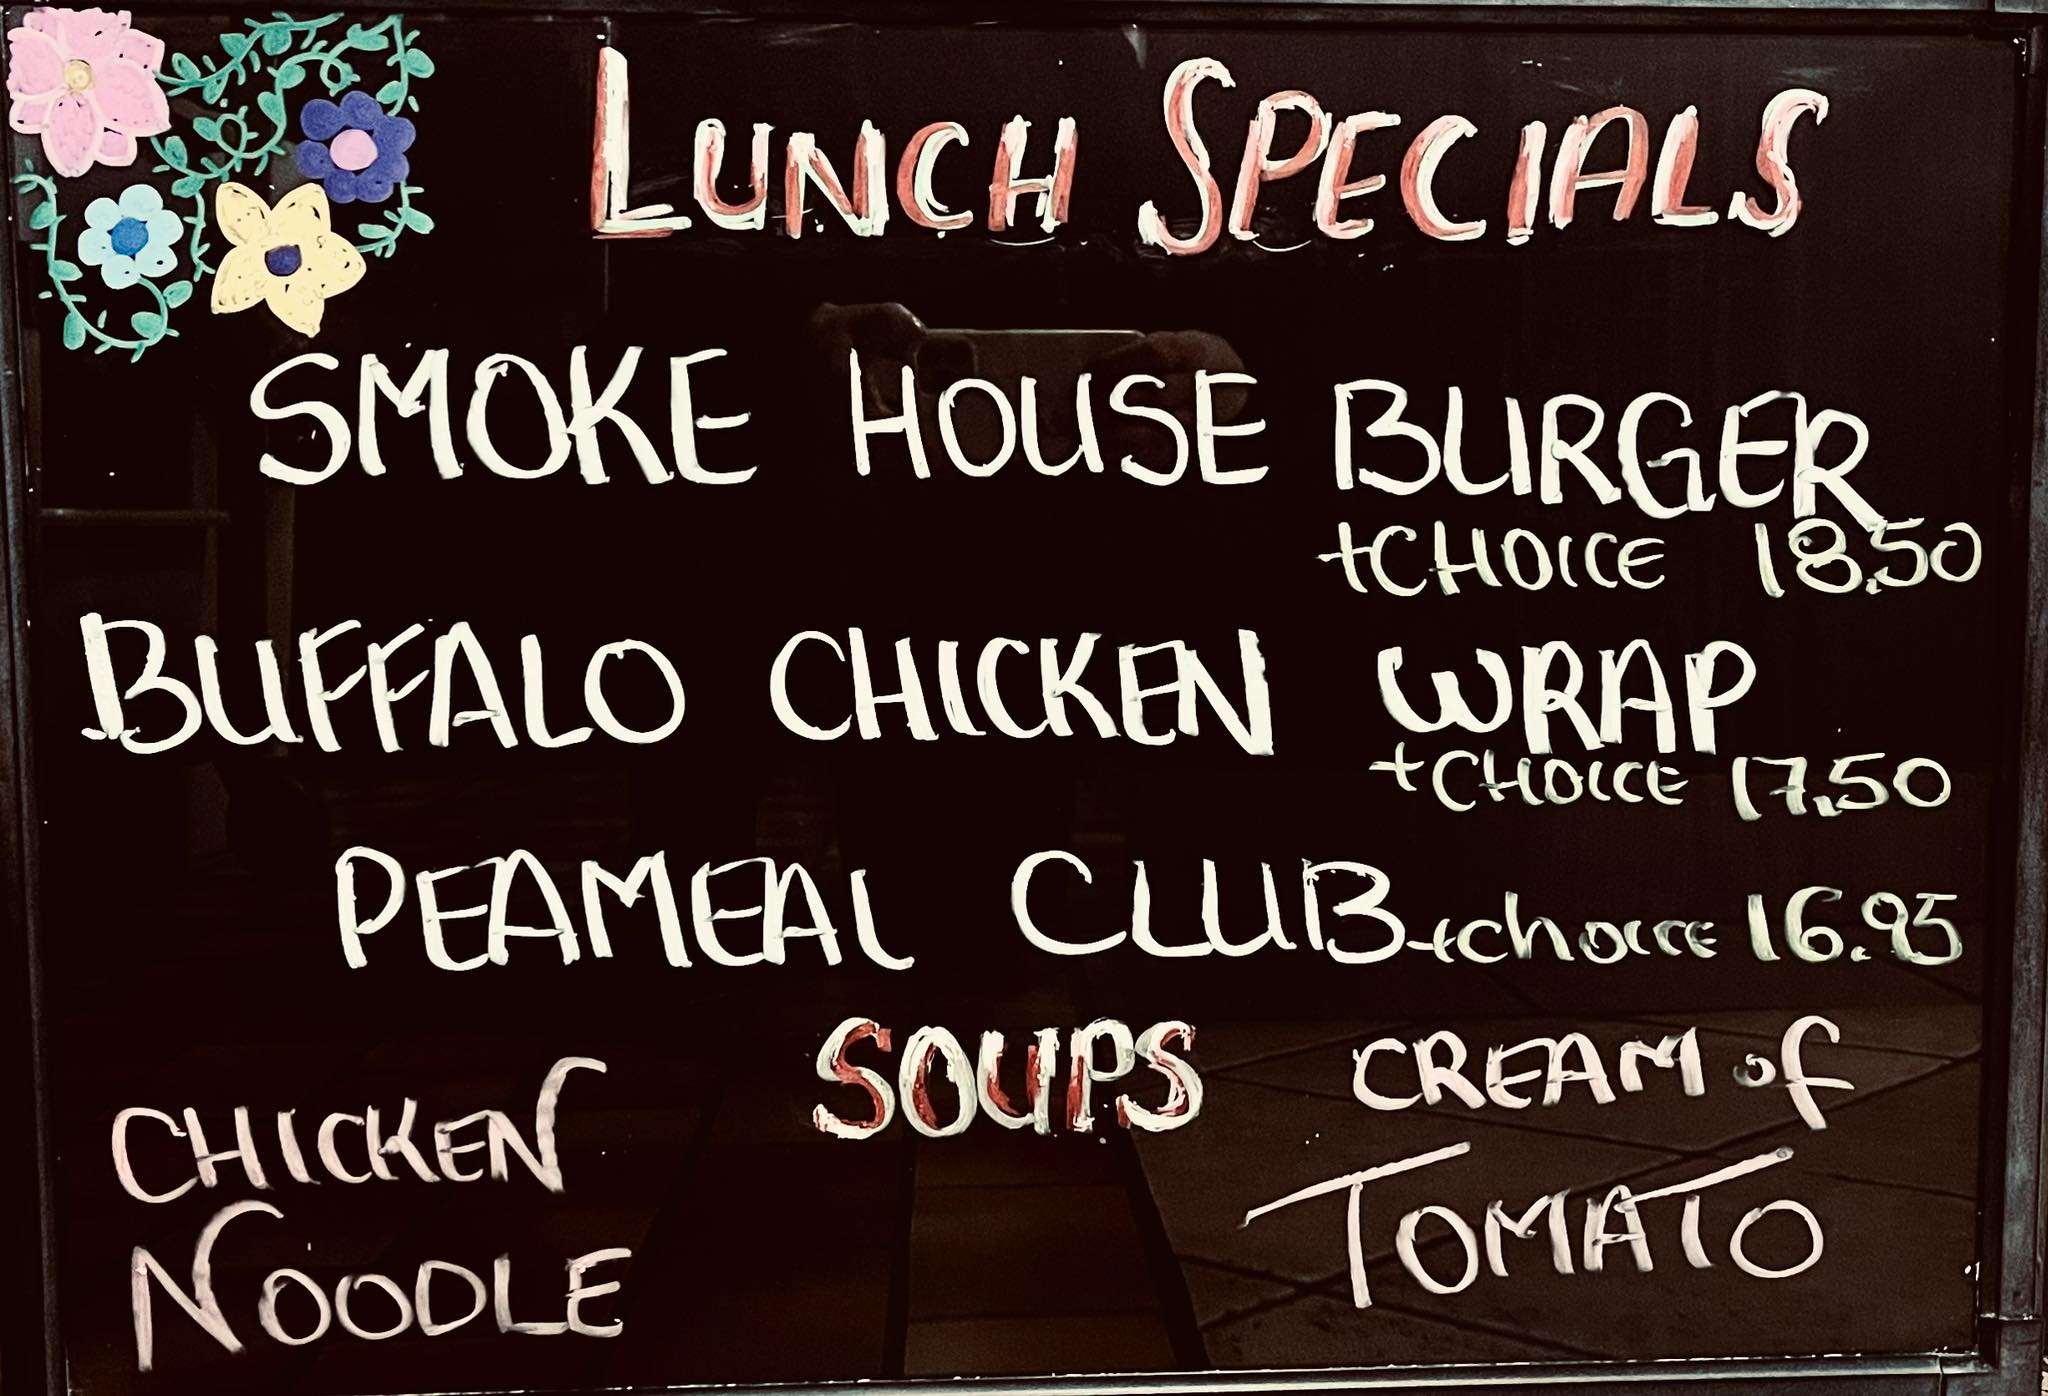 LUNCH SPECIALS
SMOKE HOUSE BURGER
+CHOICE 18.50
BUFFALO CHICKEN WRAP
+CHOICE 17.50
PEAMEAL CLUB +choice 16.95
SOUPS
CHICKEN
NOODLE
CREAM of
TOMATO